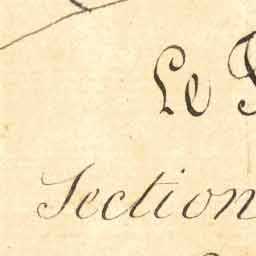 Le
Section